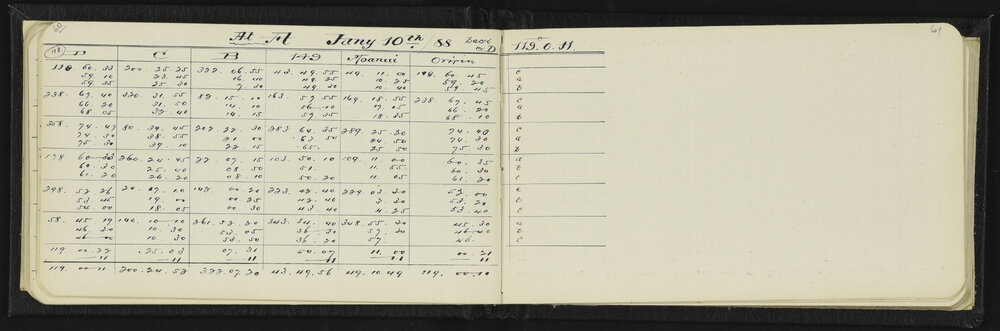 60
61
At A Jany 10th / 88 Back on D
119. 0. 11.
118
D C B 149 Moanui Origin
119 60. 33 200. 25. 25 322. 06. 55 43. 49. 55 49. 11. 00 119. 60. 45 c
59. 10 23. 45 06. 40 49. 25 10. 25 59. 20 a
59. 35 25. 30 7. 30 49. 30 10. 40 59. 45 b
238. 67. 40 320. 31. 55 82. 15. 10 163. 57. 55 169. 18. 55 238. 67. 45 c
66. 20 31. 50 14. 10 56 10 17. 15 66. 20 a
68 05 32. 40 14. 15 57. 35 18. 35 68. 10 b
358. 74. 47 80. 39. 45 202. 22. 30 283 64. 35 289. 25. 20 74. 40 c
74. 30 38. 55 21 00 63. 50 24. 50 74. 30 a
75. 30 39. 10 22. 15 65. 25 50 75. 30 b
178 60 33 260. 24. 45 22. 07. 15 103. 50. 10 109. 11. 00 60. 35 a
60. 30 25. 40 08. 50 51. 11. 55 60. 30 b
61. 20 26. 20 08. 10 50. 20 11. 05 61. 20 c
298. 52 26 20. 07. 10 142. 00. 20 223. 42. 40 229. 03. 20 52. 00 a
53. 45 19. 00 00. 25 42. 40 2. 30 53. 20 b
54. 00 18. 05 00. 30 43. 40 4. 25 53. 40 c
58. 45 19 140. 10 10 261. 52. 20 343. 34. 40 348. 55. 30 45. 30 a
46. 30 10. 30 53. 05 36 30 57. 30 46 40 b
46 00 10 30 53. 50 36. 20 57. 46. c
119 00. 22 .25. 03 07. 31 50. 07 11. 00 00. 21
11 11 11 11 11 11
119. 00 11 200. 24. 52 322. 07. 20 43. 49. 56 49. 10. 49 119. 00. 10